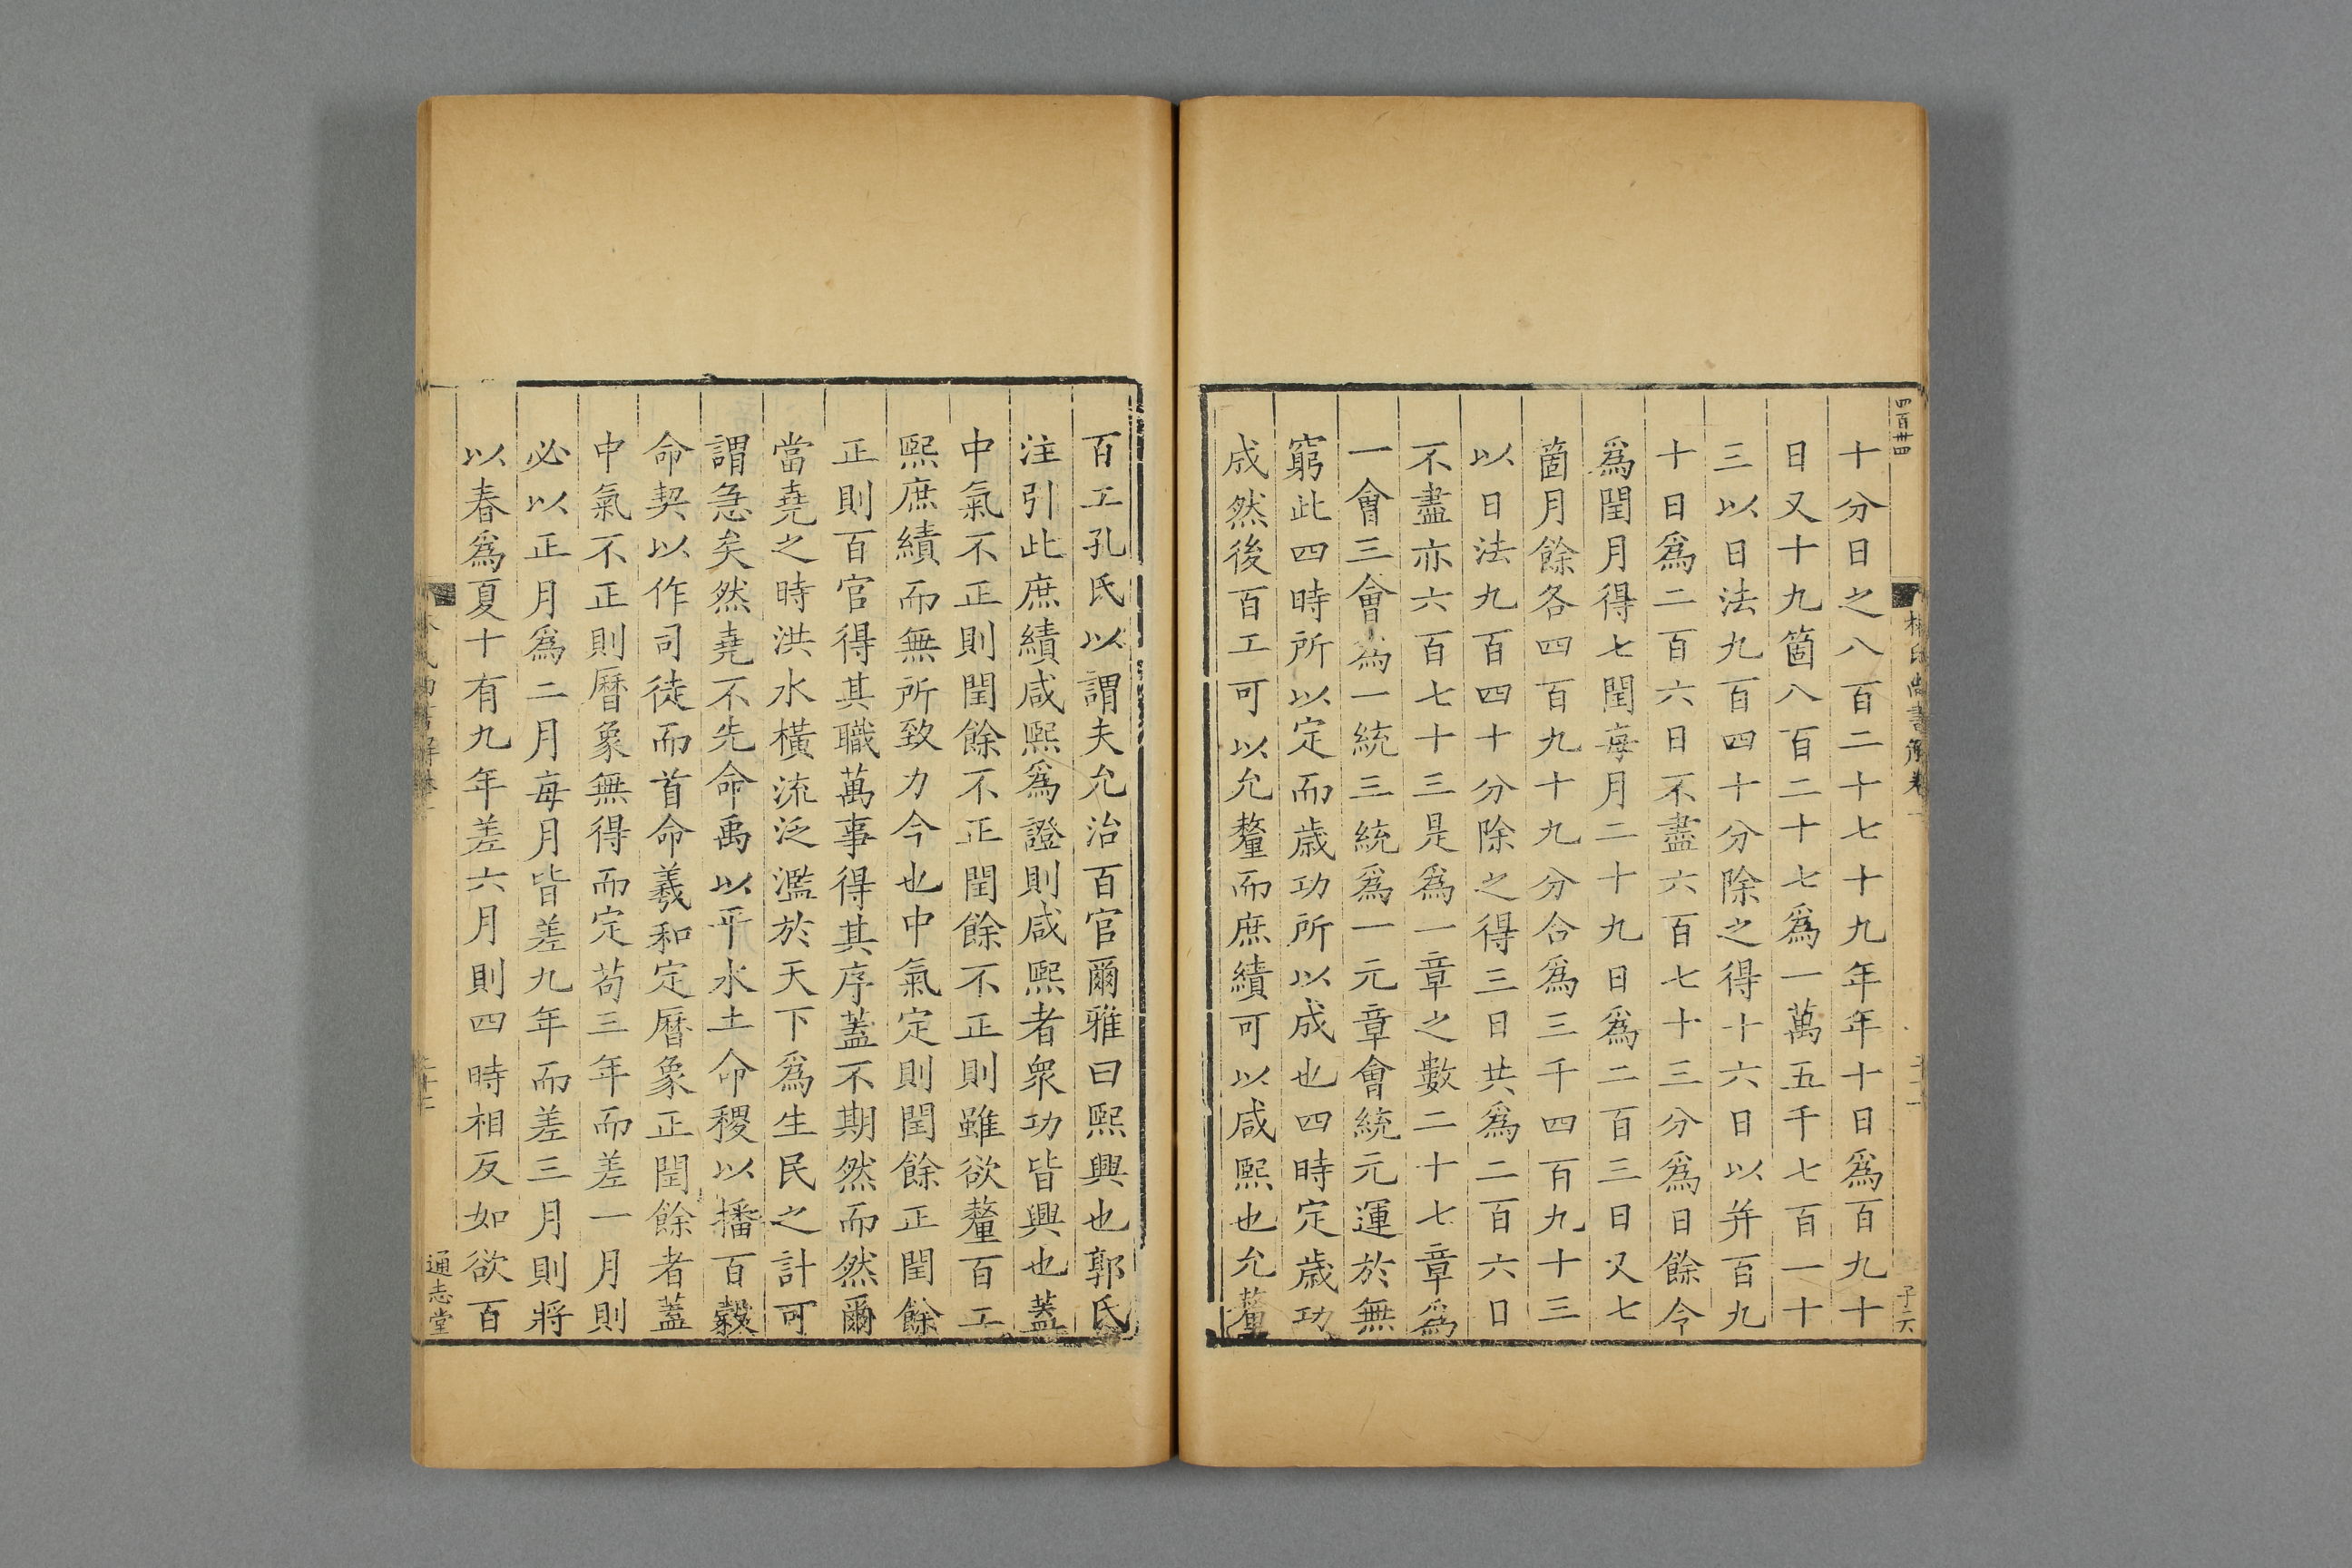 十分日之八百二十七十九年年十日爲百九十
日又十九箇八百二十七爲一萬五千七百一十
三以日法九百四十分除之得十六日以并百九
十日爲二百六日不盡六百七十三分爲日餘今
爲閏月得七閏每月二十九日爲二百三日又七
箇月餘各四百九十九分合爲三千四百九十三
以日法九百四十分除之得三日共爲二百六日
不盡亦六百七十三是爲一章之數二十七章爲
一會三會爲一統三統爲一元章會統元運於無
窮此四時所以定而歲功所以成也四時定歲功
成然後百工可以允釐而庶績可以咸熙也允釐
百工孔氏以謂夫允治百官爾雅曰熙興也郭氏
注引此庶績咸熙爲證則咸熙者衆功皆興也蓋
中氣不正則閏餘不正閏餘不正則雖欲釐百工
熙庶績而無所致力今也中氣定則閏餘正閏餘
正則百官得其職萬事得其序蓋不期然而然爾
當堯之時洪水橫流泛濫於天下爲生民之計可
謂急矣然堯不先命禹以平水土命稷以播百穀
命契以作司徒而首命羲和定曆象正閏餘者蓋
中氣不正則曆象無得而定苟三年而差一月則
必以正月爲二月每月皆差九年而差三月則將
以春爲夏十有九年差六月則四時相反如欲百
通志堂